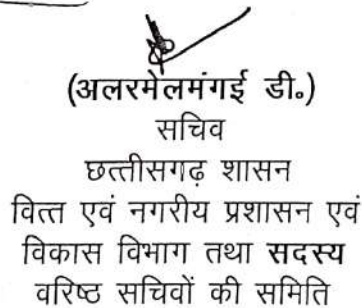 (अलरमेलमंगई डी.)
सचिव
छत्तीसगढ़ शासन
वित्त एवं नगरीय प्रशासन एवं
विकास विभाग तथा सदस्य
वरिष्ठ सचिवों की समिति